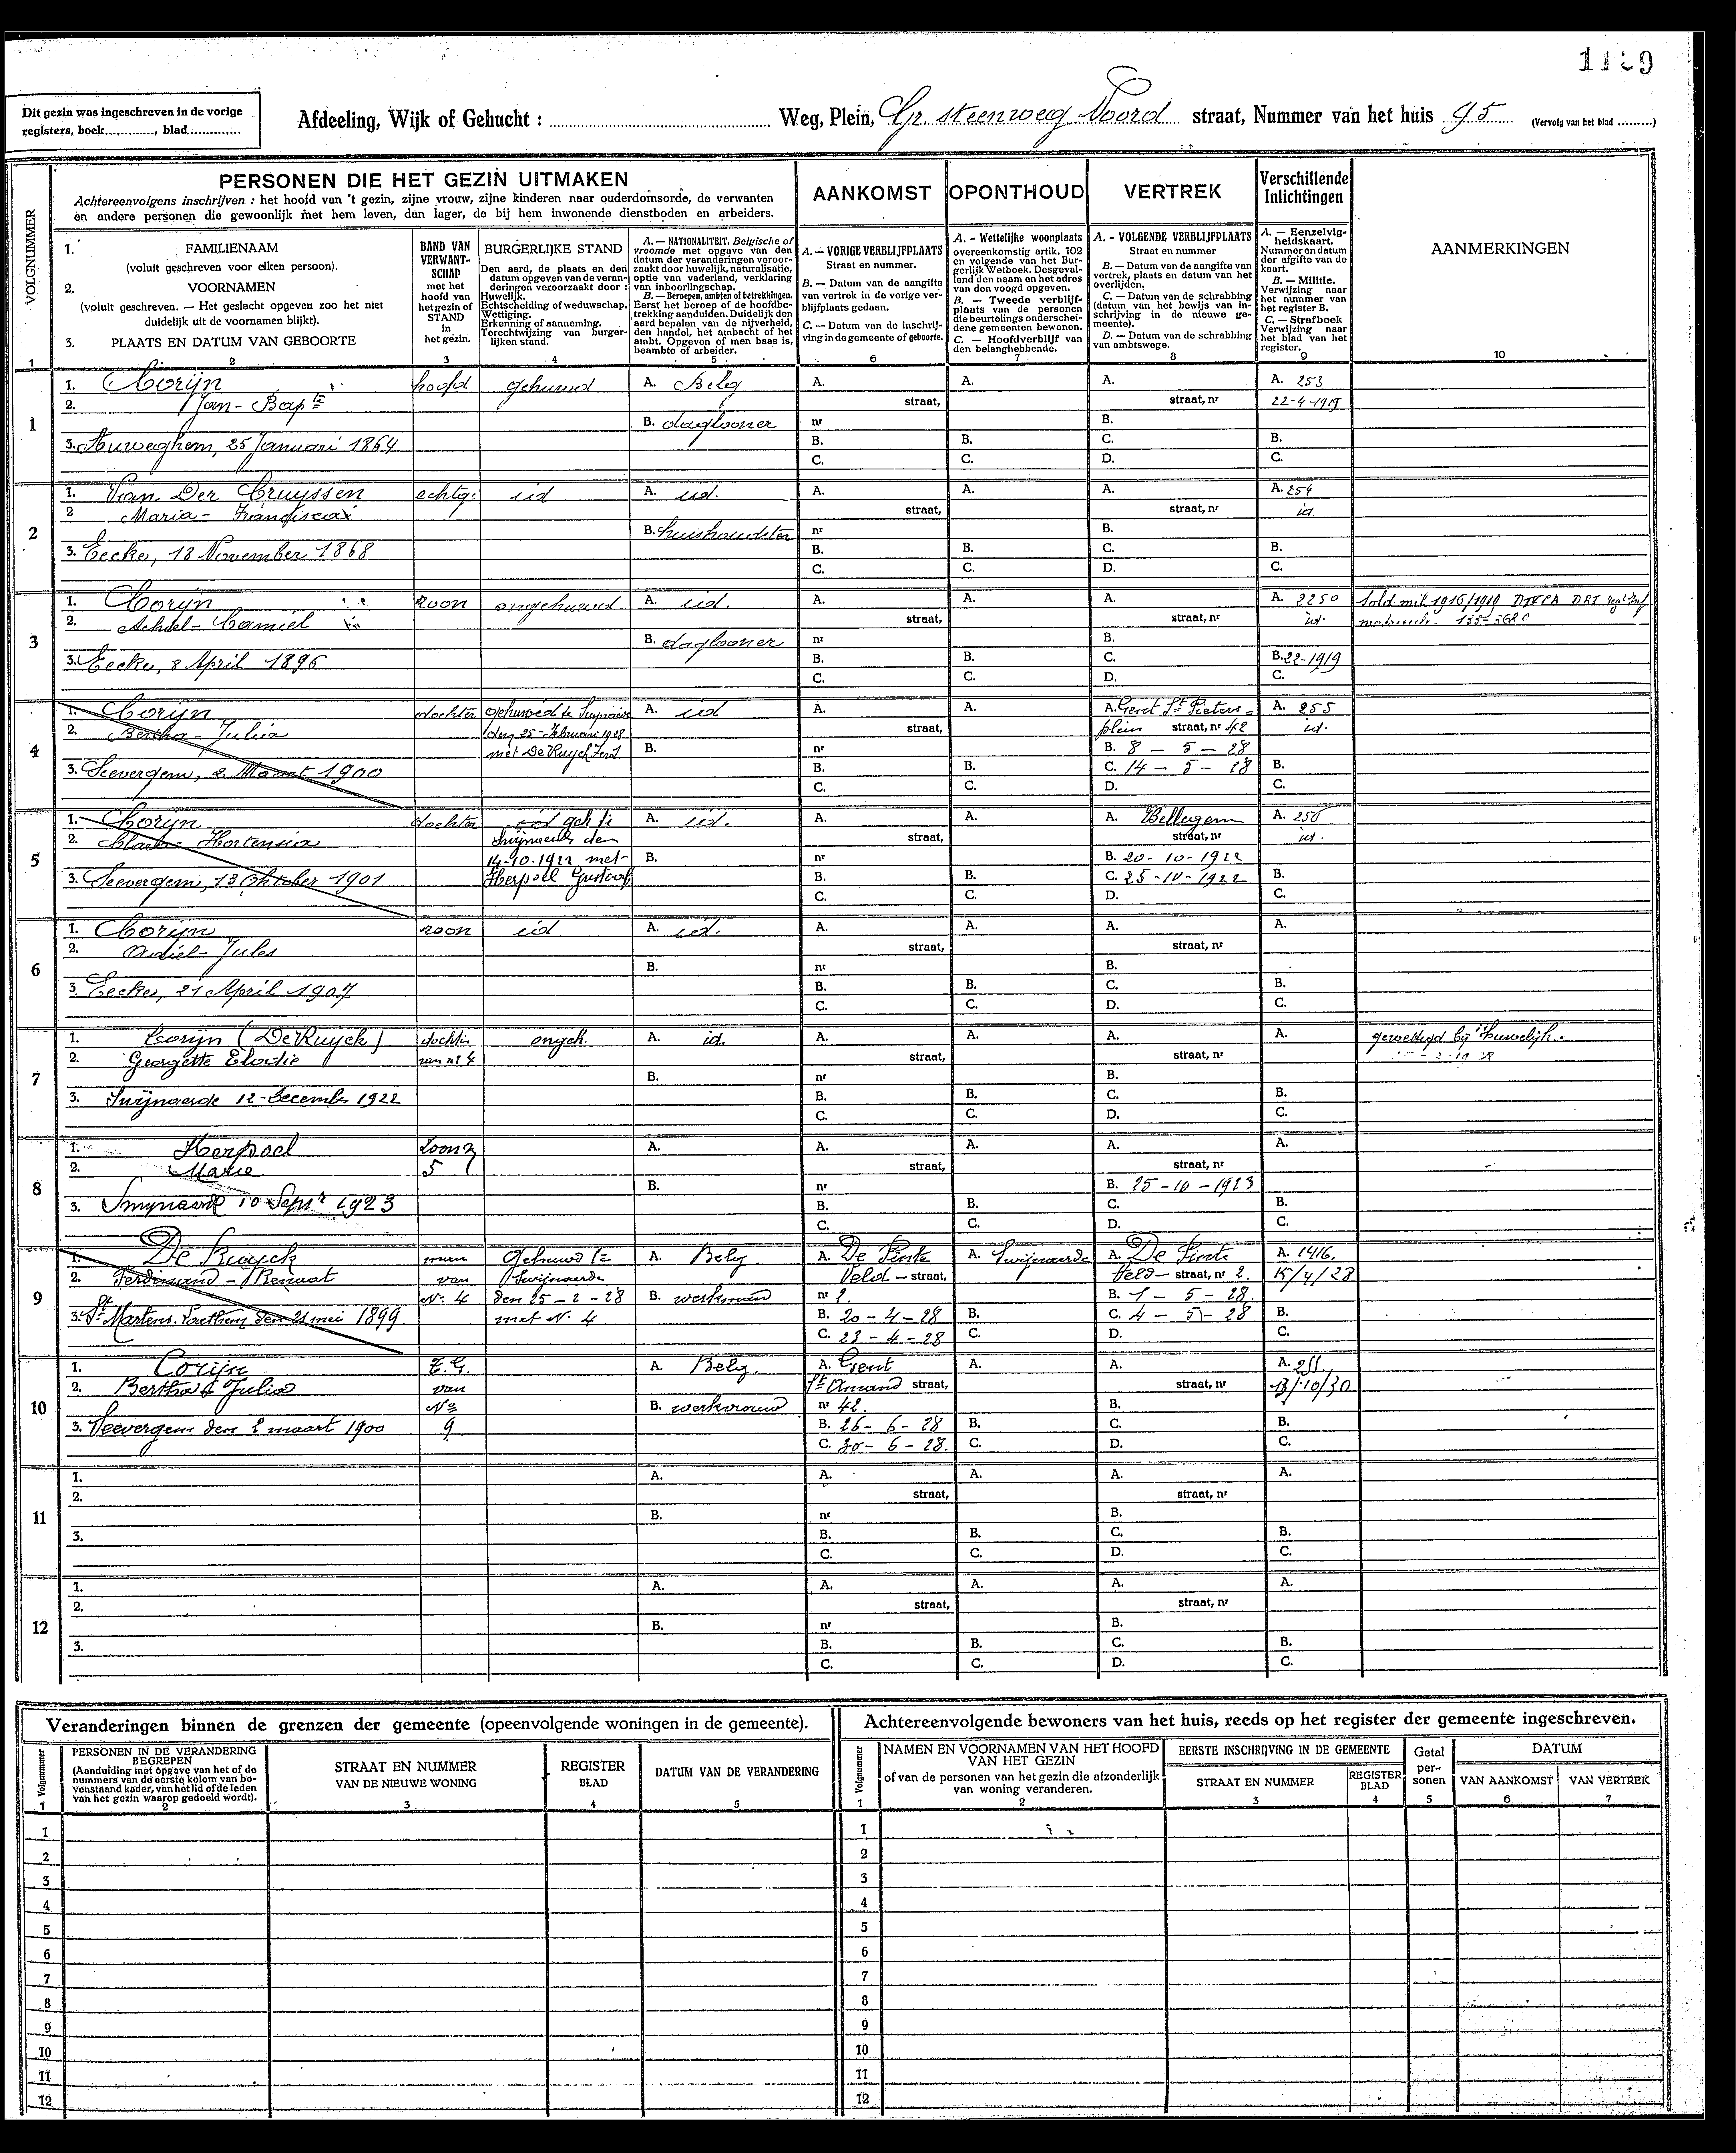 Dit gezin was ingeschreven in de vorige
registers, boek............, blad............
Afdeeling, Wijk of Gehucht : ............ Weg, Plein, Gr. steenweg Noord straat, Nummer van het huis 95 (Vervolg van het blad .........)
VOLGNUMMER
PERSONEN DIE HET GEZIN UITMAKEN
Achtereenvolgens inschrijven : het hoofd van 't gezin, zijne vrouw, zijne kinderen naar ouderdomsorde, de verwanten
en andere personen die gewoonlijk met hem leven, dan lager, de bij hem inwonende dienstboden en arbeiders.
AANKOMST
OPONTHOUD
VERTREK
Verschillende
Inlichtingen
AANMERKINGEN
1. FAMILIENAAM
(voluit geschreven voor elken persoon).
2. VOORNAMEN
(voluit geschreven. — Het geslacht opgeven zoo het niet
duidelijk uit de voornamen blijkt).
3. PLAATS EN DATUM VAN GEBOORTE
BAND VAN
VERWANT-
SCHAP
met het
hoofd van
het gezin of
STAND
in
het gezin.
BURGERLIJKE STAND
Den aard, de plaats en den
datum opgeven van de veran-
deringen veroorzaakt door :
Huwelijk.
Echtscheiding of weduwschap.
Wettiging.
Erkenning of aanneming.
Terechtwijzing van burger-
lijken stand.
A. — NATIONALITEIT. Belgische of
vreemde met opgave van den
datum der veranderingen veroor-
zaakt door huwelijk, naturalisatie,
optie van vaderland, verklaring
van inboorlingschap.
B. — Beroepen, ambten of betrekkingen.
Eerst het beroep of de hoofdbe-
trekking aanduiden. Duidelijk den
aard bepalen van de nijverheid,
den handel, het ambacht of het
ambt. Opgeven of men baas is,
beambte of arbeider.
A. — VORIGE VERBLIJFPLAATS
Straat en nummer.
B. — Datum van de aangifte
van vertrek in de vorige ver-
blijfplaats gedaan.
C. — Datum van de inschrij-
ving in de gemeente of geboorte.
A. - Wettelijke woonplaats
overeenkomstig artik. 102
en volgende van het Bur-
gerlijk Wetboek. Desgeval-
lend den naam en het adres
van den voogd opgeven.
B. — Tweede verblijf-
plaats van de personen
die beurtelings onderschei-
dene gemeenten bewonen.
C. — Hoofdverblijf van
den belanghebbende.
A. - VOLGENDE VERBLIJFPLAATS
Straat en nummer
B. — Datum van de aangifte van
vertrek, plaats en datum van het
overlijden.
C. — Datum van de schrabbing
(datum van het bewijs van in-
schrijving in de nieuwe ge-
meente).
D. — Datum van de schrabbing
van ambtswege.
A. — Eenzelvig-
heidskaart.
Nummer en datum
der afgifte van de
kaart.
B. — Militie.
Verwijzing naar
het nummer van
het register B.
C. — Strafboek
Verwijzing naar
het blad van het
register.
1 2 3 4 5 6 7 8 9 10
1
1. Corijn hoofd gehuwd A. Belg A. A. A. A. 253
2. Jan - Bapte straat, straat, nr 22-4-1919
B. daglooner nr B.
3. Huweghem, 25 Januari 1864 B. B. C. B.
C. C. D. C.
2
1. Van Der Cruyssen echtg. id A. id. A. A. A. A. 254
2 Maria - Francisca straat, straat, nr id.
B. huishoudster nr B.
3. Eecke, 18 November 1868 B. B. C. B.
C. C. D. C.
3
1. Corijn zoon ongehuwd A. id. A. A. A. A. 2250 Sold mil 1916/1919
2. Achiel - Camiel straat, straat, nr id.
B. daglooner nr B.
3. Eecke, 8 April 1896 B. B. C. B. 22-1919
C. C. D. C.
4
1. Corijn dochter gehuwd te A. id A. A. A. Gent St Pieters - A. 255
2. Bertha - Julia den 25 - Februari 1928 straat, plein straat, nr 42 id.
met De Ruyck Ferd. B. nr B. 8 - 5 - 28
3. Seevergem, 2 Maart 1900 B. B. C. 14 - 5 - 28 B.
C. C. D. C.
5
1. Corijn dochter id geh te A. id. A. A. A. Bellegem A. 256
2. Hortensia Swijnaerde den straat, straat, nr id.
14-10-1922 met B. nr B. 20-10-1922
3. Seevergem, 13 Oktober 1901 Herpoel Gustaaf B. B. C. 25-10-1922 B.
C. C. D. C.
6
1. Corijn zoon id A. id. A. A. A. A.
2. Odiel - Jules straat, straat, nr
B. nr B.
3 Eecke, 21 April 1907 B. B. C. B.
C. C. D. C.
7
1. Corijn (De Ruyck) dochter ongeh. A. id. A. A. A. A. gewettigd bij huwelijk.
2. Georgette Elodie van nr 4 straat, straat, nr
B. nr B.
3. Swijnaerde 12 December 1922 B. B. C. B.
C. C. D. C.
8
1. Herpoel Zoon A. A. A. A. A.
2. 5 straat, straat, nr
B. nr B. 25-10-1923
3. 10 Septr 1923 B. B. C. B.
C. C. D. C.
9
1. De Ruyck man Gehuwd te A. Belg A. De Pinte A. Swijnaerde A. De Pinte A. 1416.
2. Ferdinand - Renuat van Swijnaerde Veld - straat, Veld - straat, nr 2. 15/4/28
N. 4 den 25 - 2 - 28 B. werkman nr 2. B. 1 - 5 - 28.
3. St Martens den 21 mei 1899 met N. 4 B. 20 - 4 - 28 B. C. 4 - 5 - 28 B.
C. 23 - 4 - 28 C. D. C.
10
1. Corijn E.G. A. Belg. A. Gent A. A. A. 255
2. Bertha Julia van St Amand straat, straat, nr 13/10/30
No B. werkvrouw nr 42. B.
3. Seevergem den 2 maart 1900 9 B. 26 - 6 - 28 B. C. B.
C. 30 - 6 - 28. C. D. C.
11
1. A. A. A. A. A.
2. straat, straat, nr
B. nr B.
3. B. B. C. B.
C. C. D. C.
12
1. A. A. A. A. A.
2. straat, straat, nr
B. nr B.
3. B. B. C. B.
C. C. D. C.
Veranderingen binnen de grenzen der gemeente (opeenvolgende woningen in de gemeente).
Volgnummer
PERSONEN IN DE VERANDERING
BEGREPEN
(Aanduiding met opgave van het of de
nummers van de eerste kolom van bo-
venstaand kader, van het lid of de leden
van het gezin waarop gedoeld wordt).
STRAAT EN NUMMER
VAN DE NIEUWE WONING
REGISTER
BLAD
DATUM VAN DE VERANDERING
1 2 3 4 5
1
2
3
4
5
6
7
8
9
10
11
12
Achtereenvolgende bewoners van het huis, reeds op het register der gemeente ingeschreven.
Volgnummer
NAMEN EN VOORNAMEN VAN HET HOOFD
VAN HET GEZIN
of van de personen van het gezin die afzonderlijk
van woning veranderen.
EERSTE INSCHRIJVING IN DE GEMEENTE
STRAAT EN NUMMER
REGISTER
BLAD
Getal
per-
sonen
DATUM
VAN AANKOMST
VAN VERTREK
1 2 3 4 5 6 7
1
2
3
4
5
6
7
8
9
10
11
12